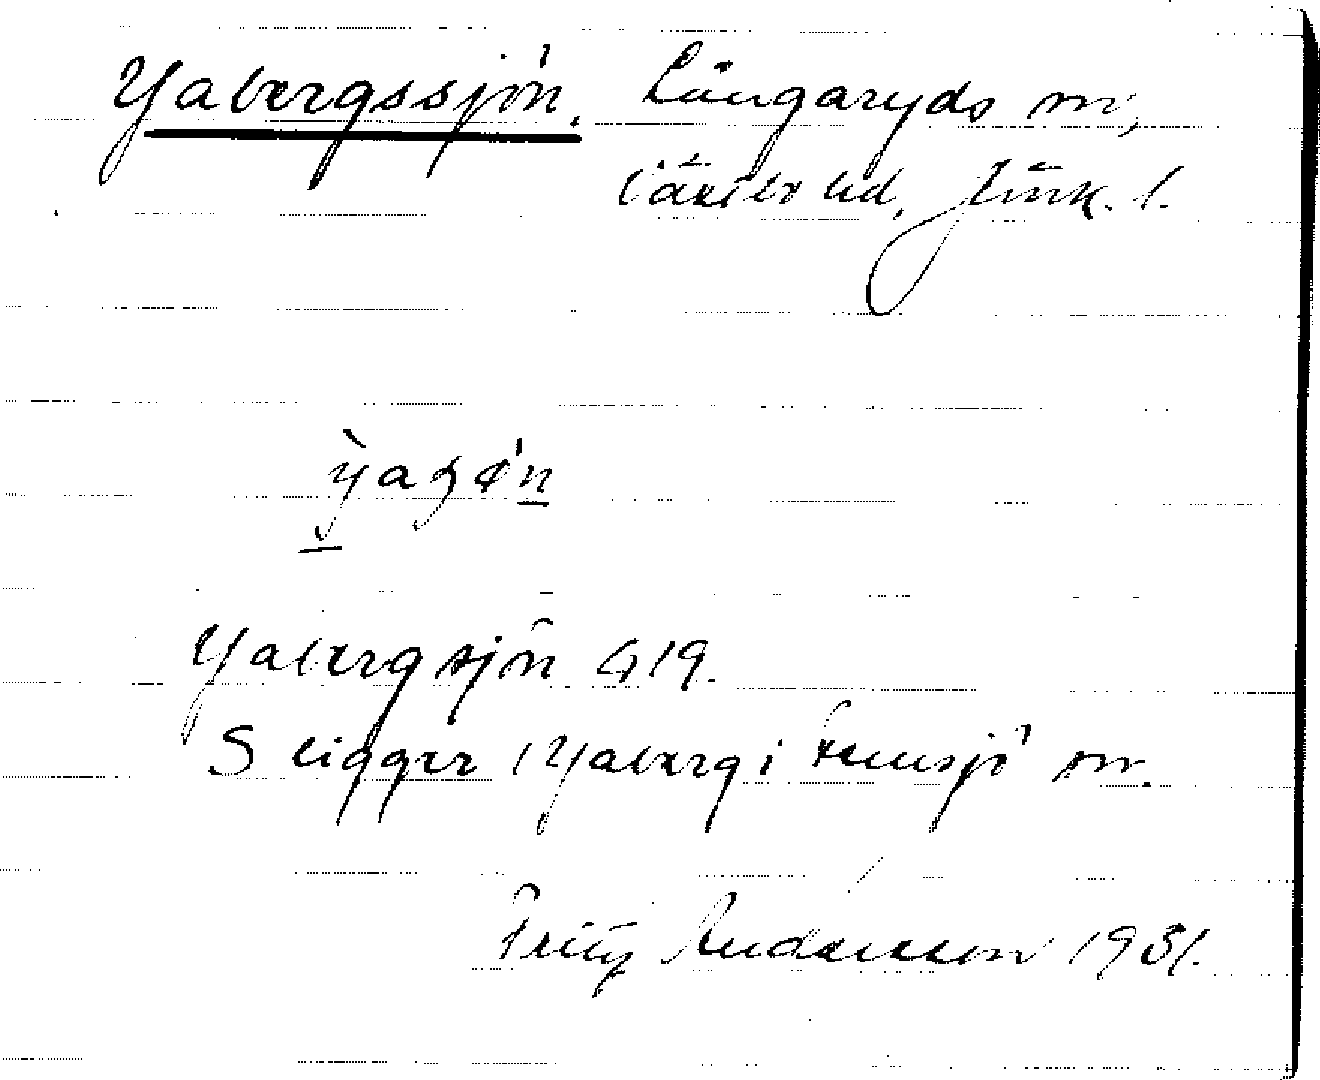 Yabergssjön. Långaryds sn,
Västbo hd, Jönk. l.
Yabergsjön G 19.
S ligger i Yaberg i Femsjö sn.
Fritz Andersson 1931.